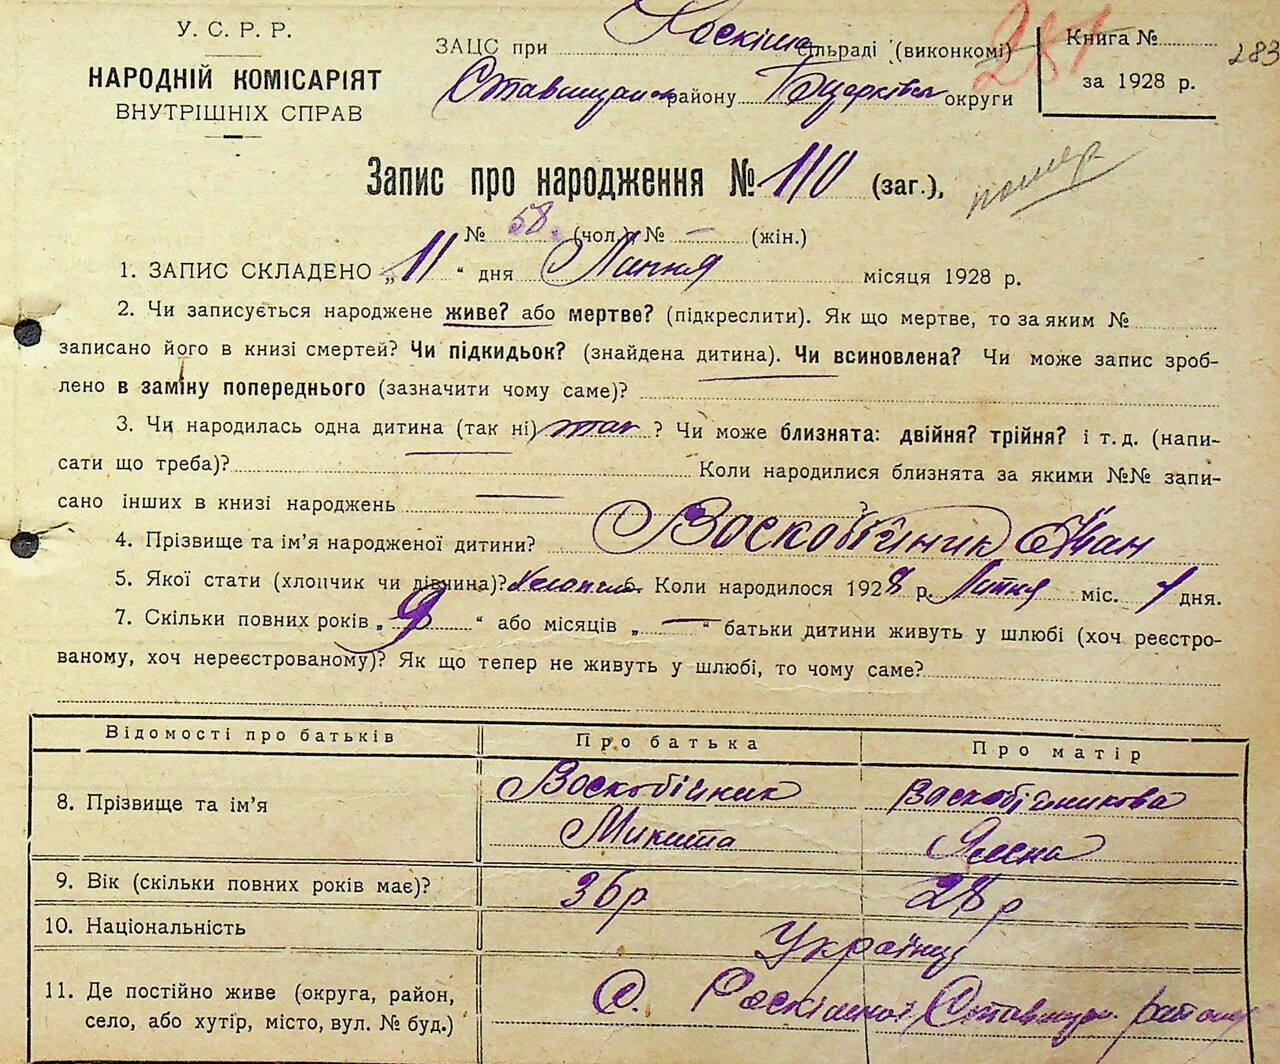 У. С. Р. Р.
НАРОДНІЙ КОМІСАРІЯТ
ВНУТРІШНІХ СПРАВ
ЗАЦС при Роскішна сільраді (виконкомі)
Ставищан району Бцерківск округи
Книга №
за 1928 р.
283
287
Запис про народження № 110 (заг.),
помер
№ 58. (чол.) № – (жін.)
1. ЗАПИС СКЛАДЕНО „11“ дня Липня місяця 1928 р.
2. Чи записується народжене живе? або мертве? (підкреслити). Як що мертве, то за яким №
записано його в книзі смертей? Чи підкидьок? (знайдена дитина). Чи всиновлена? Чи може запис зроб-
лено в заміну попереднього (зазначити чому саме)?
3. Чи народилась одна дитина (так ні) так ? Чи може близнята: двійня? трійня? і т. д. (напи-
сати що треба)? Коли народилися близнята за якими №№ запи-
сано інших в книзі народжень
4. Прізвище та ім’я народженої дитини? Воскобійник Іван
5. Якої стати (хлопчик чи дівчина)? Хлопчик 6. Коли народилося 1928 р. Липня міс. 1 дня.
7. Скільки повних років „ 9 “ або місяців „ — “ батьки дитини живуть у шлюбі (хоч реєстро-
ваному, хоч нереєстрованому)? Як що тепер не живуть у шлюбі, то чому саме?
Відомості про батьків Про батька Про матір
8. Прізвище та ім’я Воскобійник Воскобійникова
Микита Ялена
9. Вік (скільки повних років має)? 36р 28р
10. Національність Українці
11. Де постійно живе (округа, район,
село, або хутір, місто, вул. № буд.)
С. Роскішної Ставищан. району